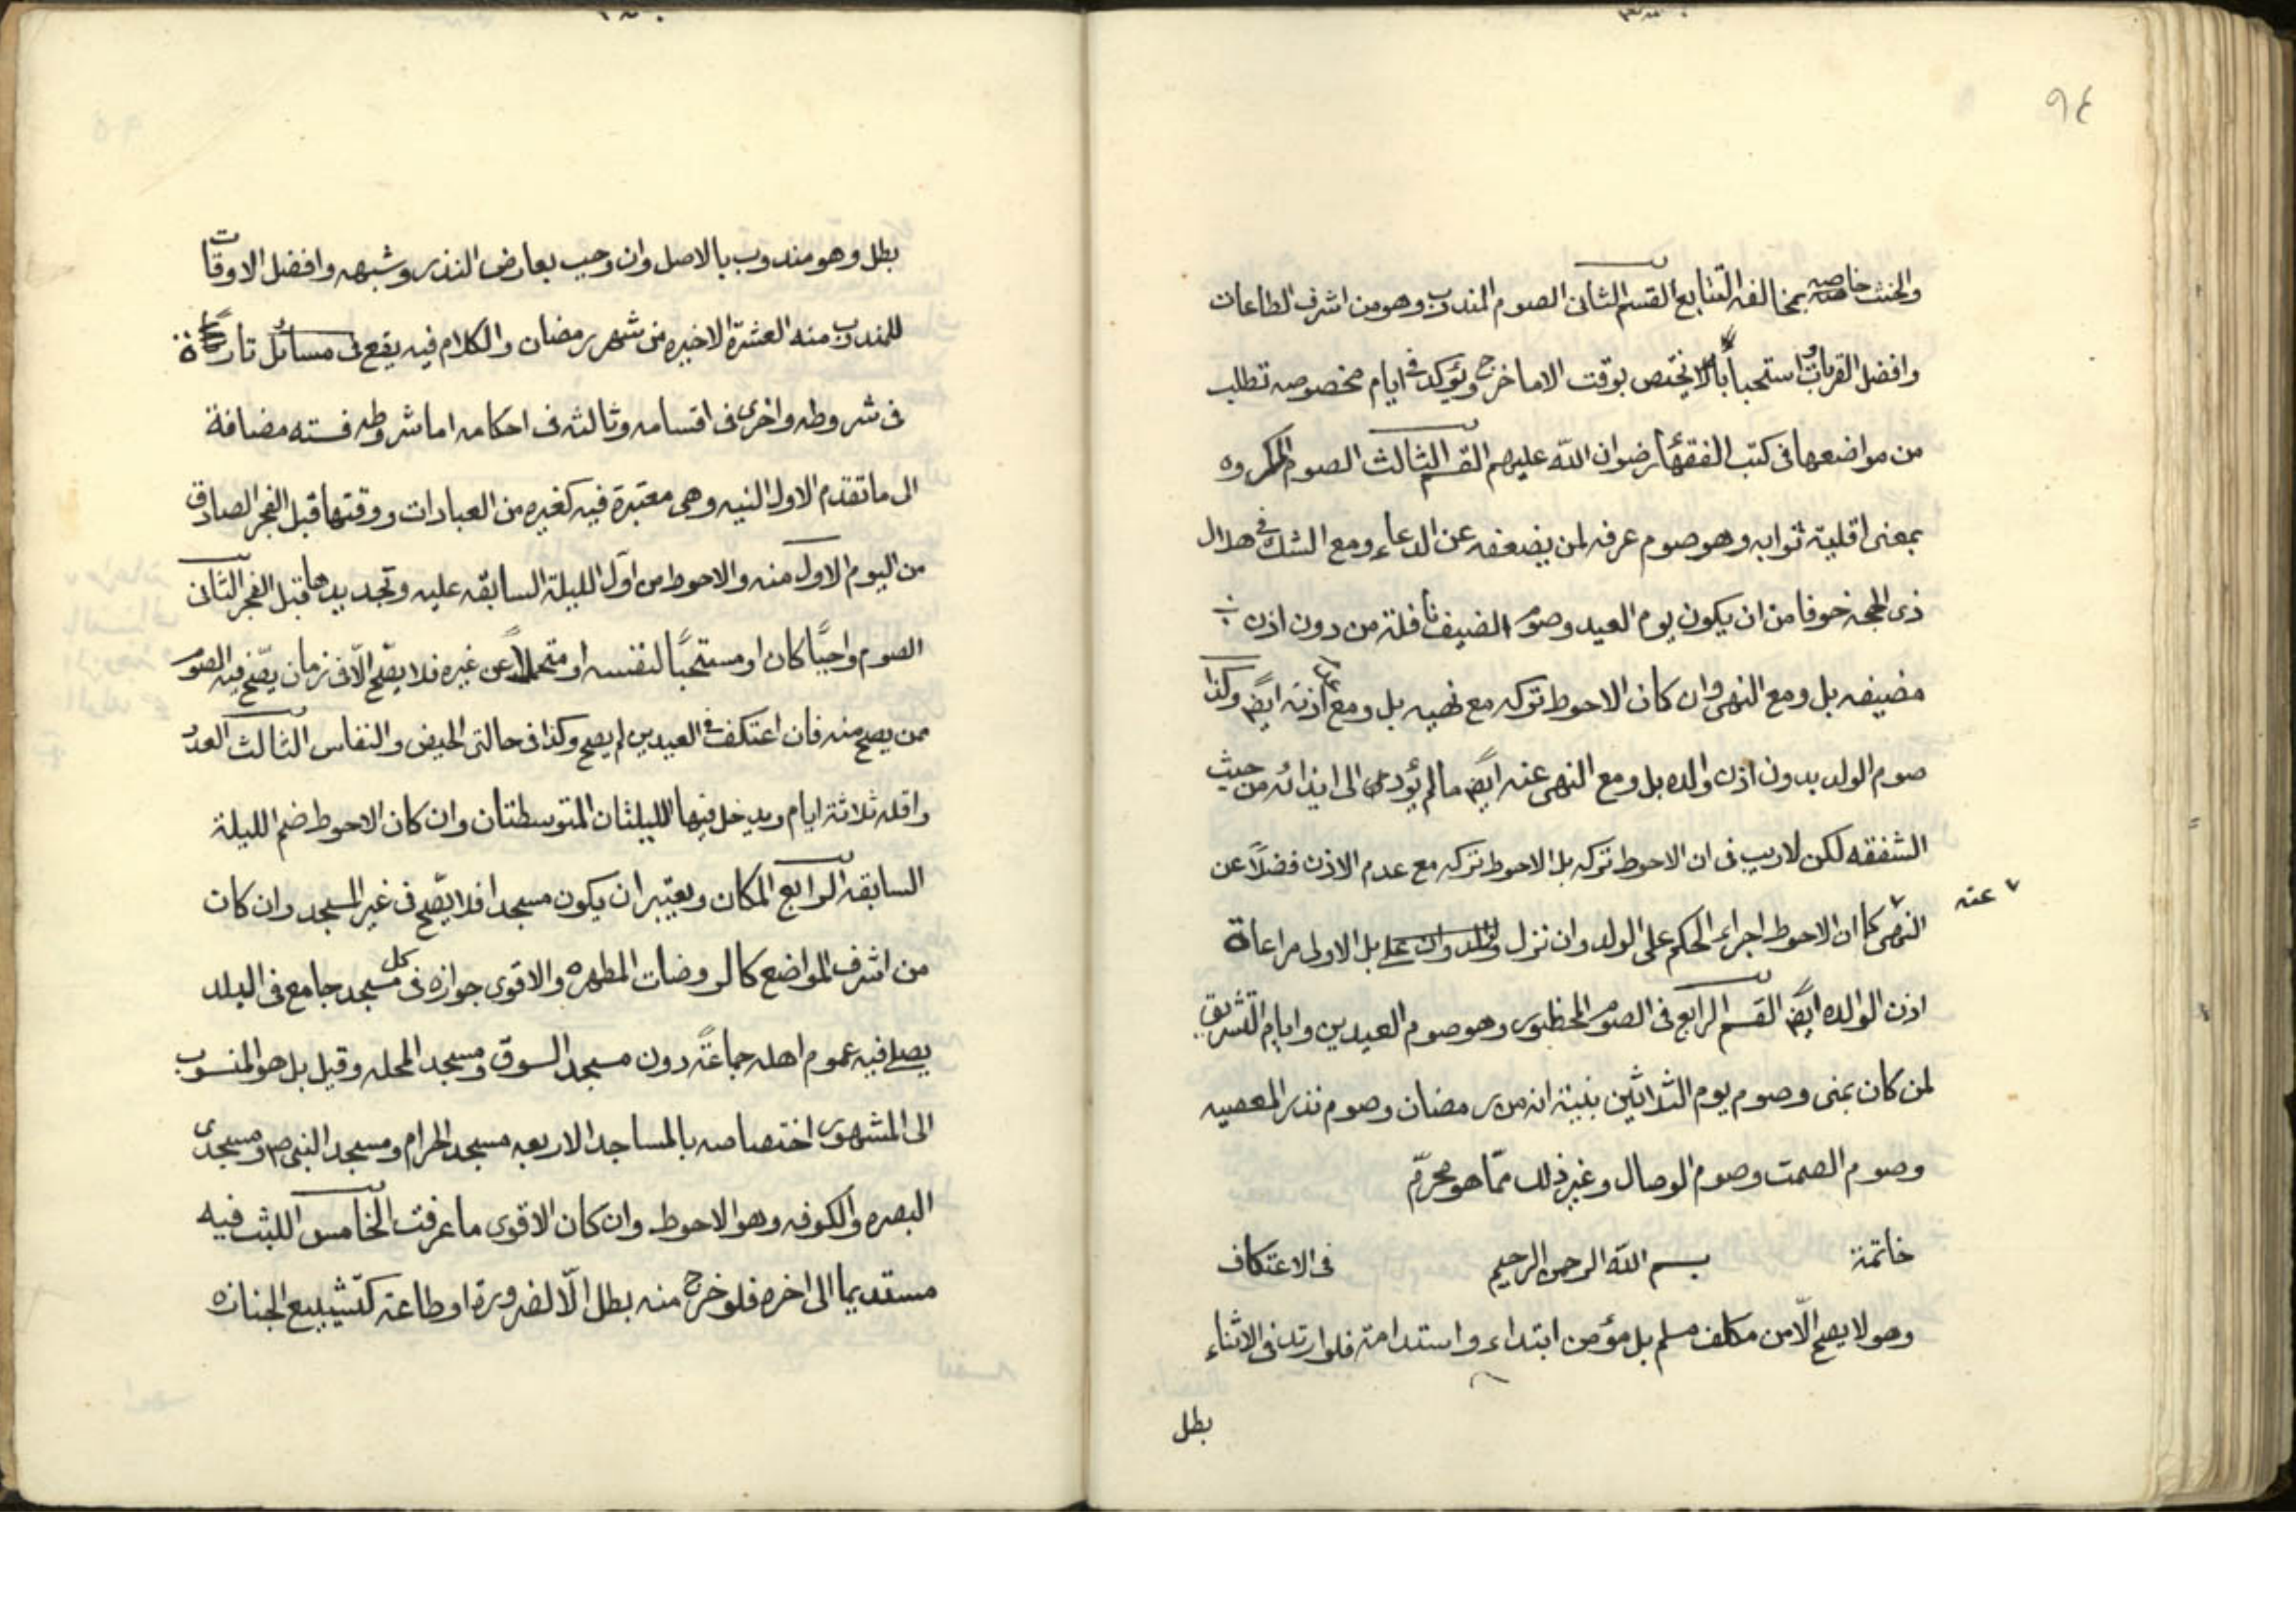 ٩٤
والحنث خاصه بمخالفه التتابع القسم الثانى الصوم المندوب وهو من اشرف الطاعات
وافضل القربات استحبابا لا يختص بوقت الا ما خرج ويؤكد فى ايام مخصوصه تطلب
من مواضعها فى كتب الفقهاء رضوان الله عليهم القسم الثالث الصوم المكروه
بمعنى اقلية ثوابه وهو صوم عرفه لمن يضعفه عن الدعاء ومع الشك فى هلال
ذى الحجه خوفا من ان يكون يوم العيد وصوم الضيف نافلة من دون اذن
مضيفه بل ومع النهى وان كان الاحوط تركه مع نهيه بل ومع عدم اذنه ايضً وكذا
صوم الولد بدون اذن والده بل ومع النهى عنه ايضً ما لم يؤد الى ايذائه من حيث
الشفقه لكن لا ريب فى ان الاحوط تركه بل الاحوط تركه مع عدم الاذن فضلاً عن
النهى كما ان الاحوط اجراء الحكم على الولد وان نزل بل الاولى مراعاة
عنه
اذن الوالده ايضً القسم الرابع فى الصوم المحظور وهو صوم العيدين وايام التشريق
لمن كان بمنى وصوم يوم الثلاثين بنية انه من رمضان وصوم نذر المعصيه
وصوم الصمت وصوم الوصال وغير ذلك ممّا هو محرّم
خاتمة بسم الله الرحمن الرحيم فى الاعتكاف
وهو لا يصح الّا من مكلف مسلم بل مؤمن ابتداء واستدامة فلو ارتد فى الاثناء
بطل
بطل وهو مندوب بالاصل وان وجب بعارض النذر وشبهه وافضل الاوقات
للمندوب منه العشرة الاخيره من شهر رمضان والكلام فيه يقع فى مسائل تارة
فى شروطه واخرى فى اقسامه وثالثه فى احكامه اما شروطه فسته مضافة
الى ما تقدم الاول النيه وهى معتبرة فيه كغيره من العبادات ووقتها قبل الفجر الصادق
من اليوم الاول منه والاحوط من اوّل الليلة السابقه عليه وتجديدها قبل الفجر الثانى
الصوم واجبًا كان او مستحبًا لنفسه او متحملاً عن غيره فلا يصّح الّا فى زمان يصّح فيه الصوم
ممن يصح منه فان اعتكف فى العيدين لم يصح وكذا فى حالتى الحيض والنفاس الثالث العدد
واقله ثلاثة ايام ويدخل فيها الليلتان المتوسطتان وان كان الاحوط ضم الليلة
السابقه الرابع المكان ويعتبر ان يكون مسجدا فلا يصّح فى غير المسجد وان كان
من اشرف المواضع كالروضات المطهره والاقوى جوازه فى كل مسجد جامع فى البلد
يصلى فيه عموم اهله جماعةً دون مسجد السوق ومسجد المحله وقيل بل هو المنسوب
الى المشهور اختصاصه بالمساجد الاربعه مسجد الحرام ومسجد النبى ص ومسجدى
البصره والكوفه وهو الاحوط وان كان الاقوى ما عرفت الخامس اللبث فيه
مستديما الى اخره فلو خرج منه بطل الّا لضرورة او طاعة كتشييع الجنازه